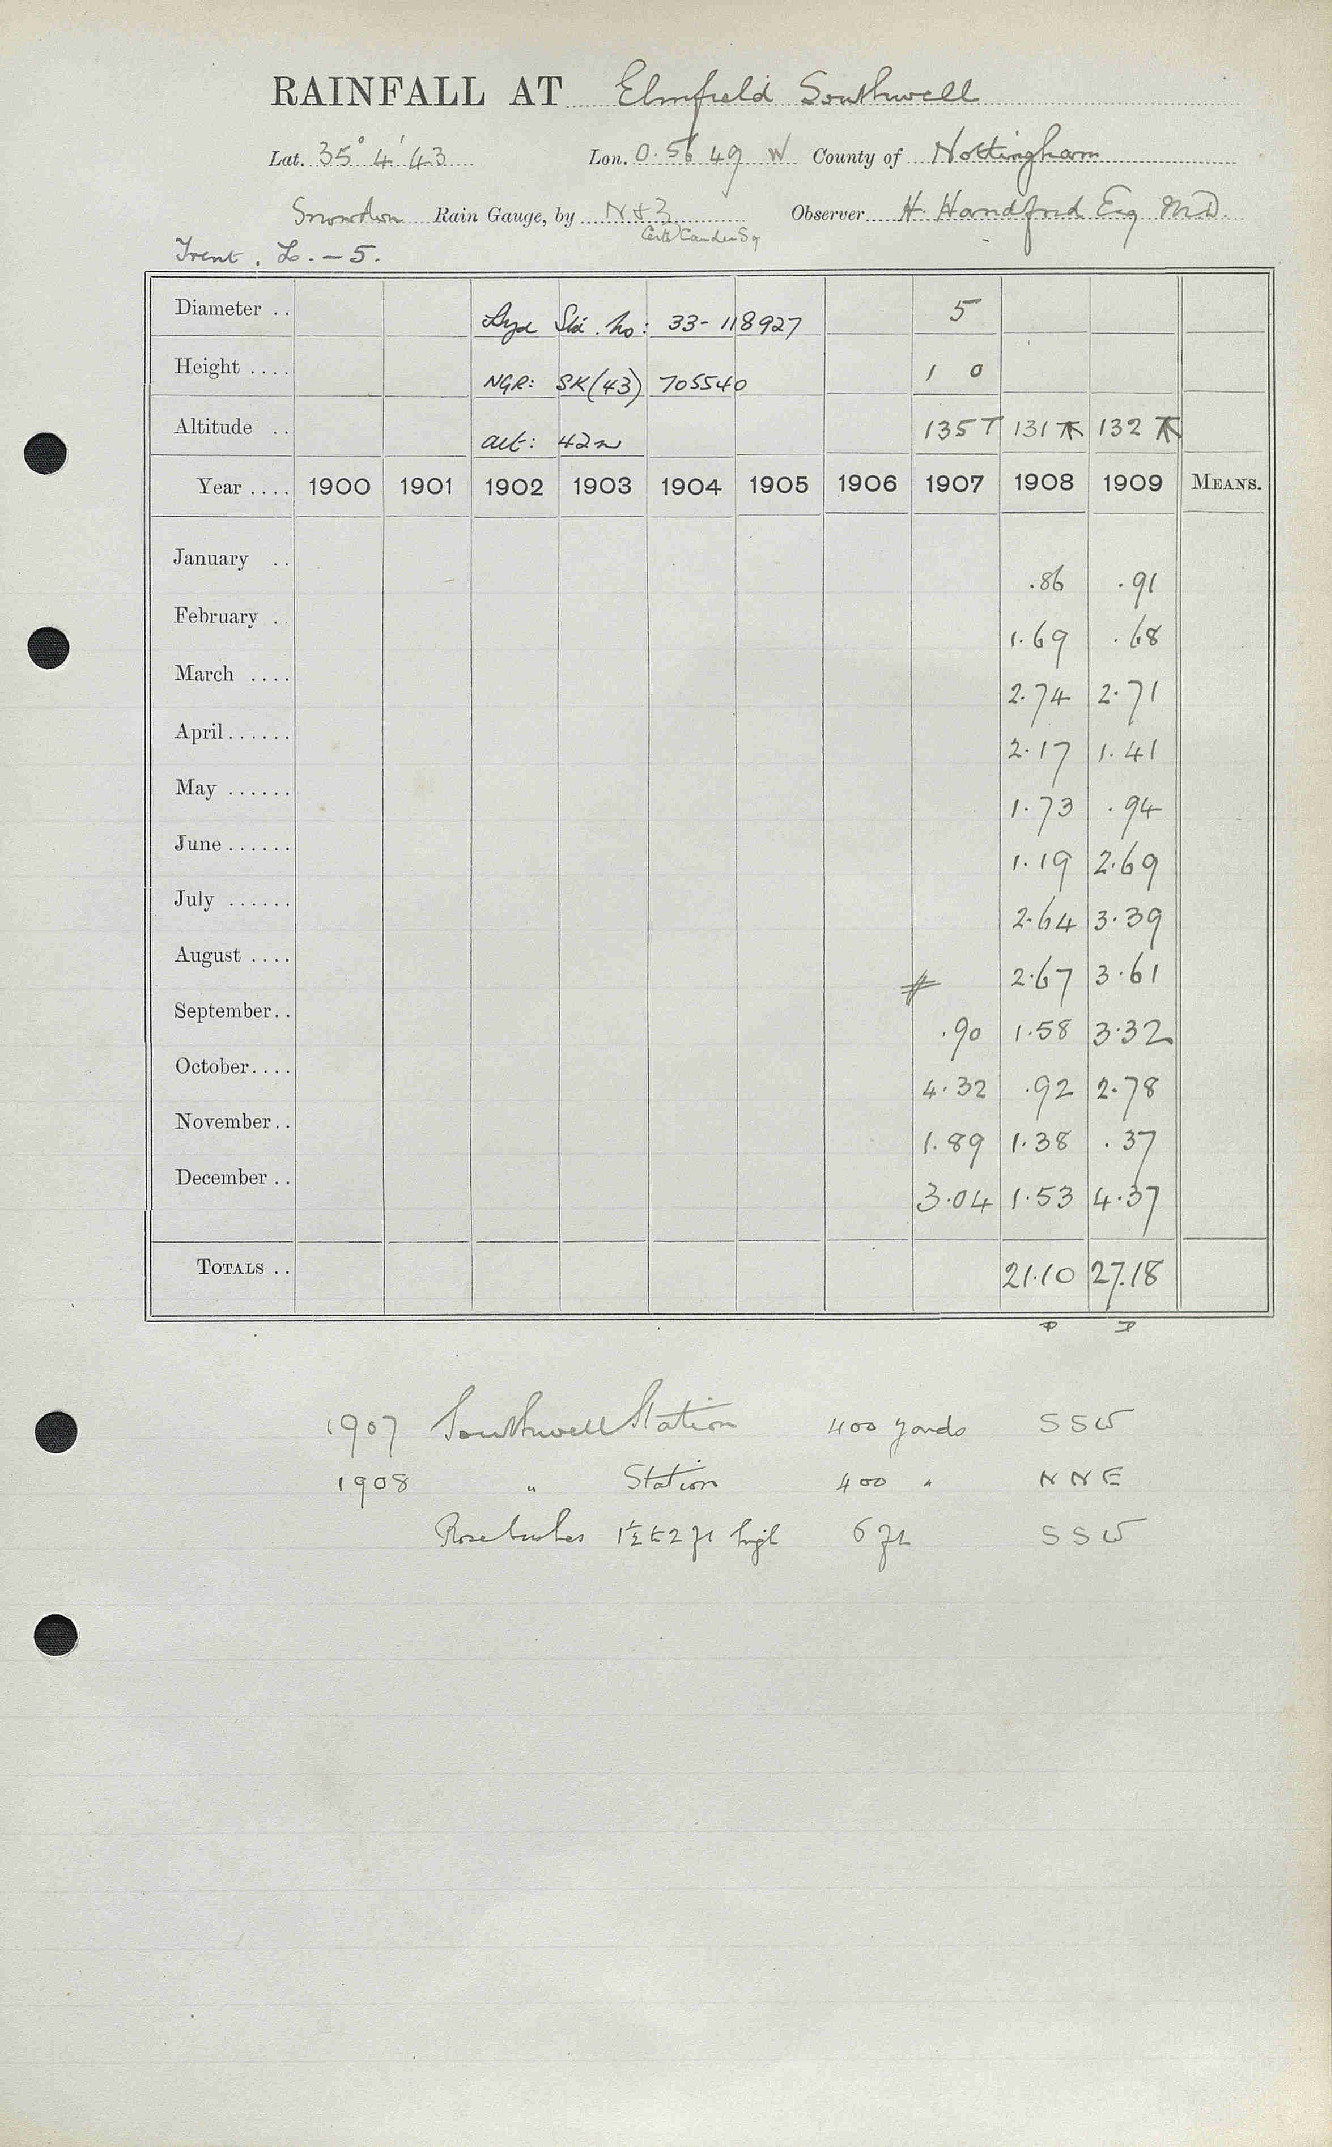 RAINFALL AT Elmfield Southwell
Lat. 35° 4' 43 Lon. 0. 56 49 W County of Nottingham
Snowdon Rain Gauge, by N & Z Observer H. Handford Esq MD.
Certd Camden Sq
Trent. L. - 5.
Diameter .. 5
Hyd Stn. No: 33- 118927
Height .... 1 0
NGR: SK(43) 705540
Altitude .. 135 T 131 T 132 T
alt: 42m
Year .... 1900 1901 1902 1903 1904 1905 1906 1907 1908 1909 MEANS.
January .. .86 .91
February . 1.69 .68
March .... 2.74 2.71
April...... 2.17 1.41
May ...... 1.73 .94
June ...... 1.19 2.69
July ...... 2.64 3.39
August .... # 2.67 3.61
September.. .90 1.58 3.32
October.... 4.32 .92 2.78
November.. 1.89 1.38 .37
December .. 3.04 1.53 4.37
TOTALS .. 21.10 27.18
1907 Southwell Station 400 yards SSW
1908 " Station 400 " NNE
Rose bushes 1½ to 2 ft high 6 ft SSW